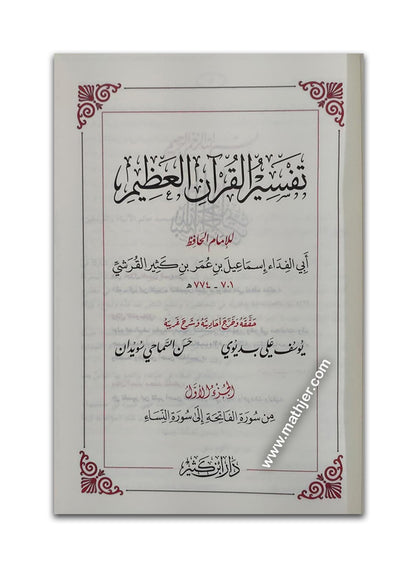 تفسير القرآن العظيم
للإمام الحافظ
أبي الفداء إسماعيل بن عمر بن كثير القرشي
٧٠١ - ٧٧٤ هـ
حققه وخرج أحاديثه وشرح غريبه
يوسف علي بديوي حسن السماحي سويدان
الجزء الأول
من سورة الفاتحة إلى سورة النساء
دار ابن كثير
www.mathjer.com